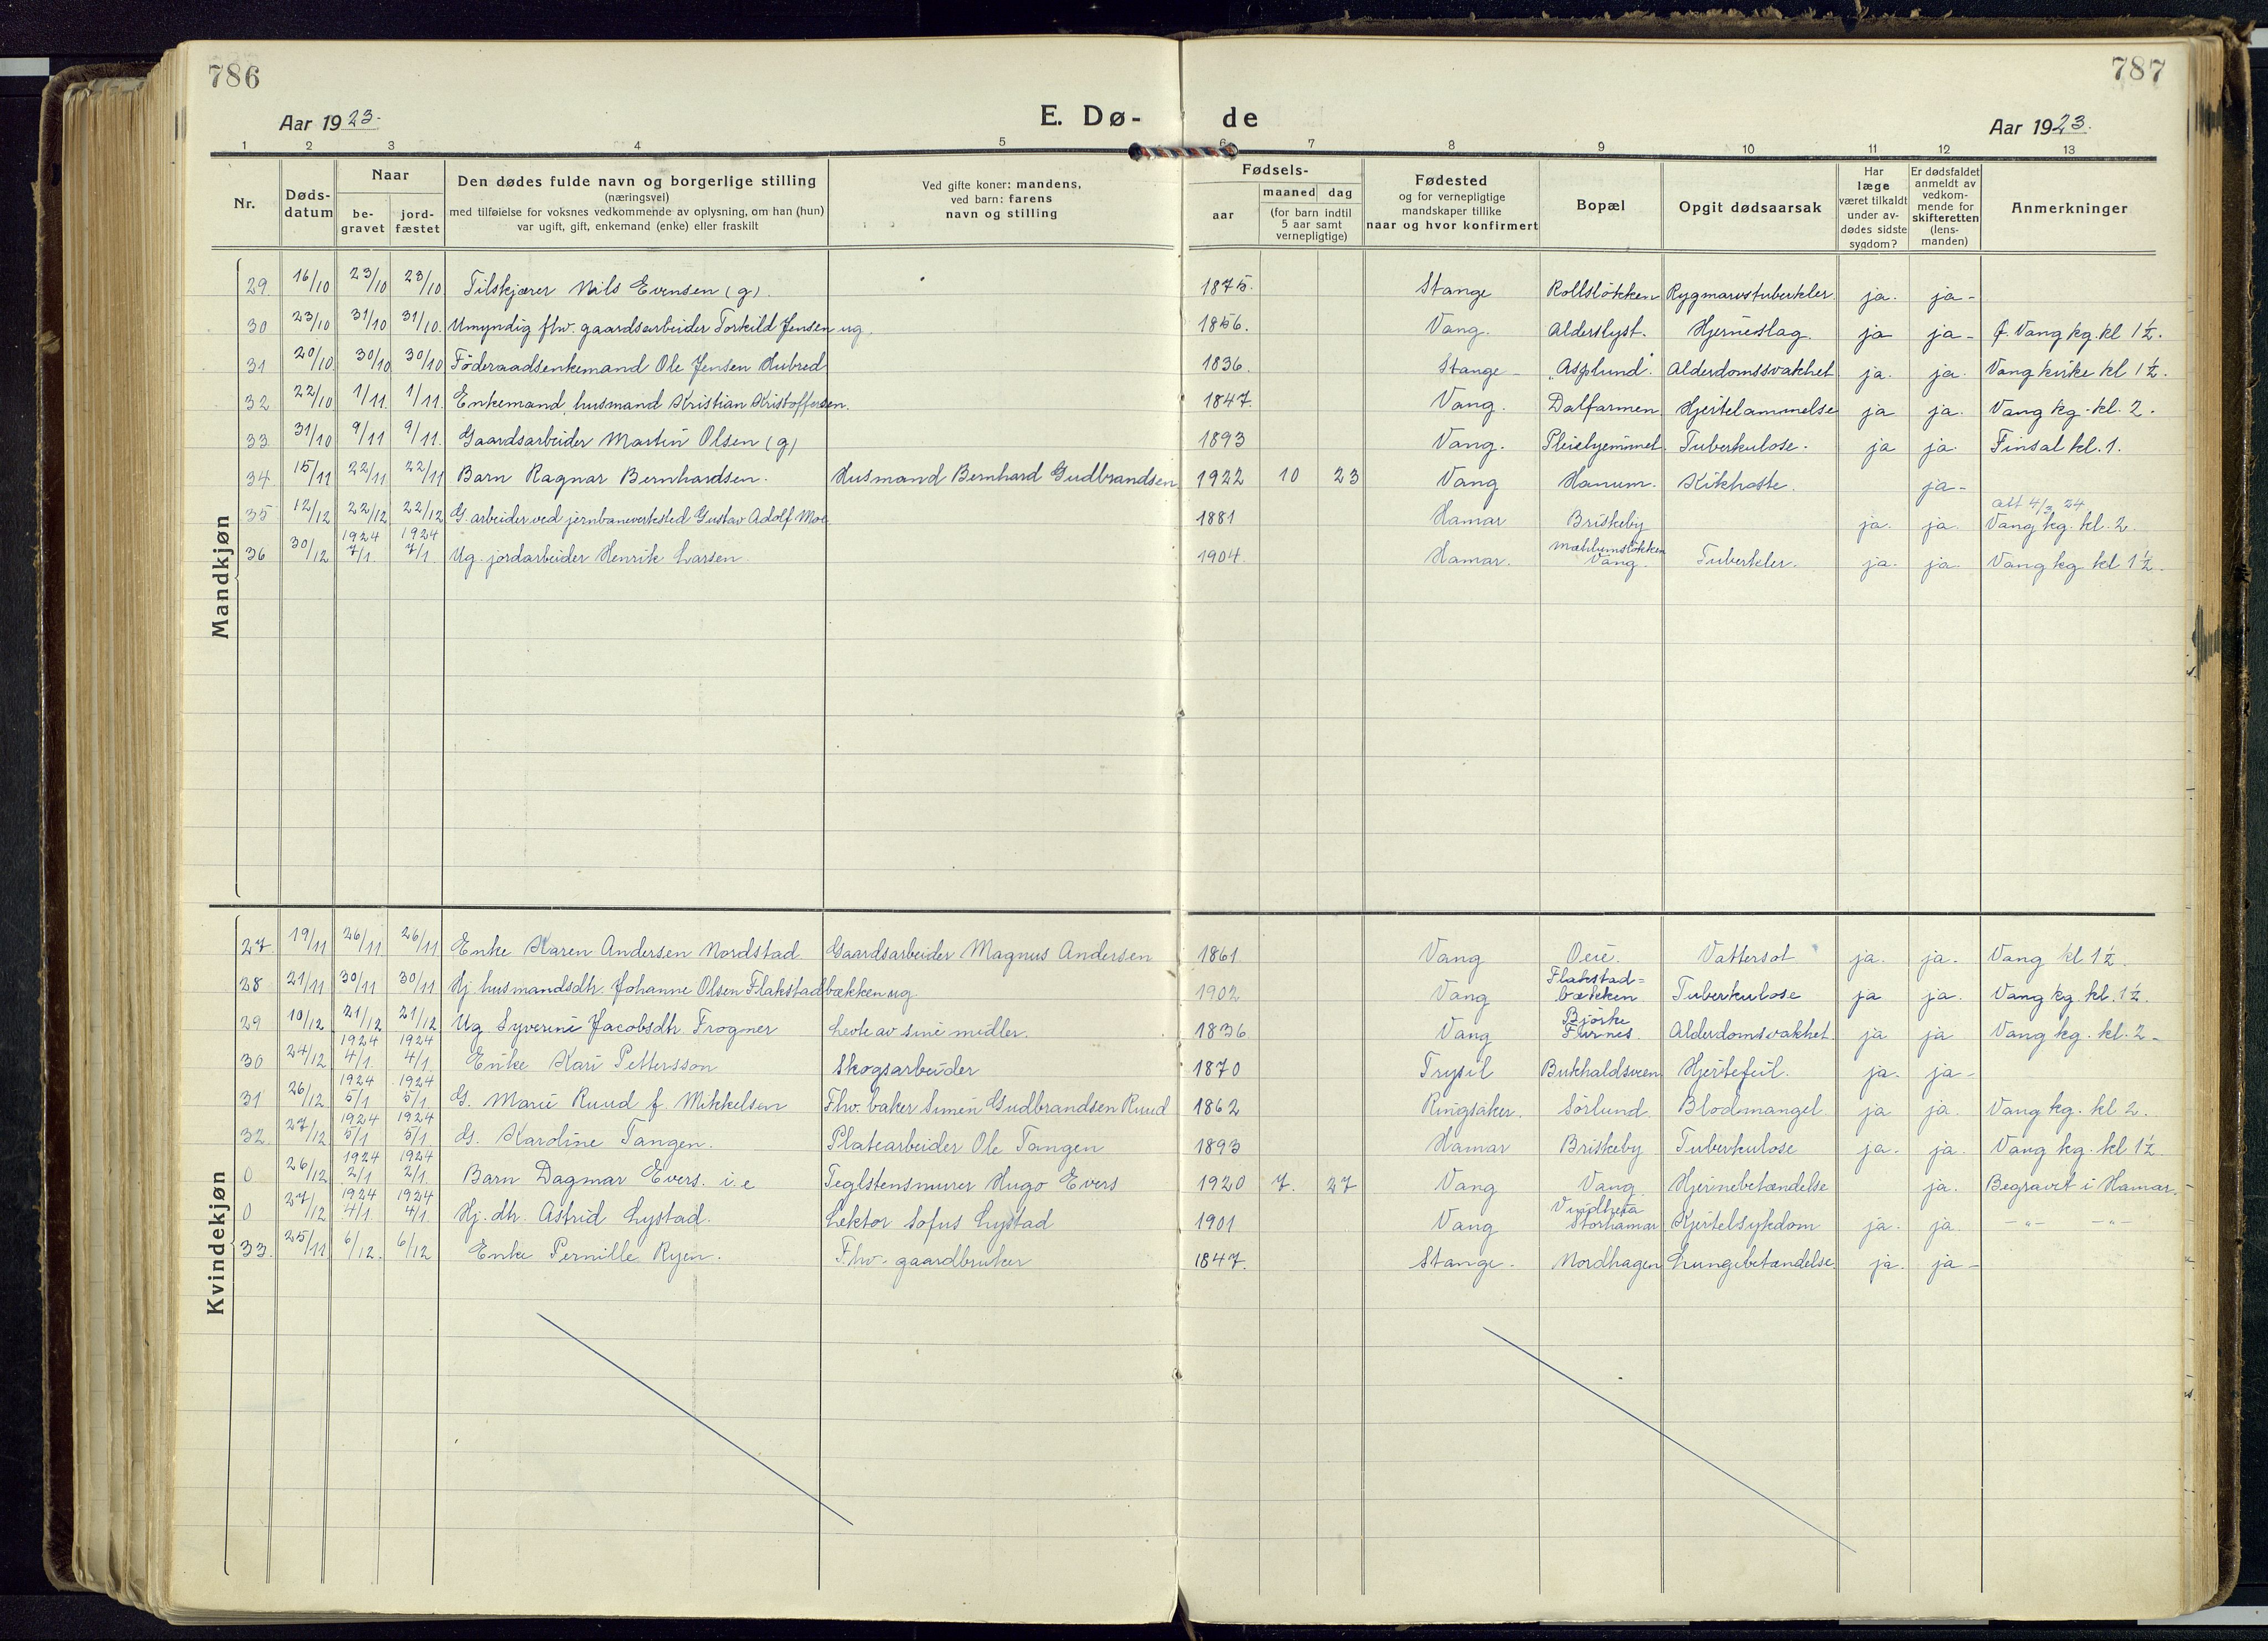 786
787
Aar 1923.
E. Dø-
de
Aar 1923.
1 2 3 4 5 6 7 8 9 10 11 12 13
Nr.
Døds-
datum
Naar
be-
gravet
jord-
fæstet
Den dødes fulde navn og borgerlige stilling
(næringsvei)
med tilføielse for voksnes vedkommende av oplysning, om han (hun)
var ugift, gift, enkemand (enke) eller fraskilt
Ved gifte koner: mandens,
ved barn: farens
navn og stilling
Fødsels-
aar
maaned dag
(for barn indtil
5 aar samt
vernepligtige)
Fødested
og for vernepligtige
mandskaper tillike
naar og hvor konfirmert
Bopæl
Opgit dødsaarsak
Har
læge
været tilkaldt
under av-
dødes sidste
sygdom?
Er dødsfaldet
anmeldt av
vedkom-
mende for
skifteretten
(lens-
manden)
Anmerkninger
Mandkjøn
29 16/10 23/10 23/10 Tilskjærer Nils Evensen (g). 1875. Stange Rollsløkken Rygmarvstuberkler. ja. ja-
30 23/10 31/10 31/10. Umyndig fhv. gaardsarbeider Torkild Jensen ug. 1856. Vang. Alderslyst. Hjerneslag. ja ja- Vang kg. kl 1½.
31 20/10 30/10 30/10 Föderaadsenkemand Ole Jensen Hubred 1836. Stange- Asplund. Alderdomssvakhet ja. ja. Vang kirke kl 1½.
32 22/10 1/11. 1/11. Enkemand, husmand Kristian Kristoffersen. 1847. Vang. Dalfarmen Hjertelammelse ja ja. Vang kg. kl. 2.
33 31/10 9/11 9/11. Gaardsarbeider Martin Olsen (g) 1893 Vang. Pleiehjemmet. Tuberkulose. ja ja. Finsal kl. 1.
34 15/11 22/11 22/11 Barn Ragnar Bernhardsen. Husmand Bernhard Gudbrandsen 1922 10 23 Vang Hanum. Kikhoste. ja-
att 4/3 24
35 12/12 22/12 22/12 G. arbeider ved jernbaneverksted Gustav Adolf Moe 1881 Hamar Briskeby ja. ja. Vang kg. kl. 2.
1924 1924
36 30/12 7/1. 7/1. Ug. jordarbeider Henrik Larsen. 1904. Hamar. Mæhlumsløkken Vang. Tuberkler. ja. ja. Vang kg kl 1½.
Kvindekjøn
27 19/11 26/11 26/11 Enke Karen Andersen Nordstad. Gaardsarbeider Magnus Andersen 1861 Vang Oeie. Vattersot ja. ja. Vang kl 1½.
28 21/11 30/11 30/11 Hj. husmandsdtr. Johanne Olsen Flakstadbækken ug 1902 Vang Flakstad=
bækken Tuberkulose ja ja. Vang kg. kl. 1½.
29 10/12 21/12 21/12 Ug Syverine Jacobsdtr. Frogner Levte av sine midler. 1836 Vang Bjørke
Furnes. Alderdomsvakhet. ja ja Vang kg. kl. 2-
1924 1924
30 24/12 4/1. 4/1 Enke Kari Pettersson Skogsarbeider 1870 Trysil Bukhaldsveen Hjertefeil. ja. ja-
1924 1924
31 26/12 5/1 5/1 G. Marie Ruud f. Mikkelsen Fhv. baker Simen Gudbrandsen Ruud 1862 Ringsaker. Sörlund Blodmangel ja ja. Vang kg. kl 2.
1924 1924
32 27/12 5/1 5/1. G. Karoline Tangen. Platearbeider Ole Tangen 1893 Hamar Briskeby Tuberkulose ja. ja. Vang kg. kl 1½
1924 1924
0 26/12 2/1 2/1. Barn Dagmar Evers. i.e Teglstensmurer Hugo Evers 1920 7. 27 Vang Vang Hjernebetændelse ja. Begravet i Hamar.
1924 1924
0 27/12 4/1. 4/1. Hj. dtr. Astrid Lystad. Lektor Sofus Lystad 1901 Vang Storhamar Kjertelsykdom ja. ja. -"- -"-
33. 25/11 6/12. 6/12 Enke Pernille Ryen. Fhv. gaardbruker 1847. Stange. Nordhagen Lungebetændelse ja. ja-